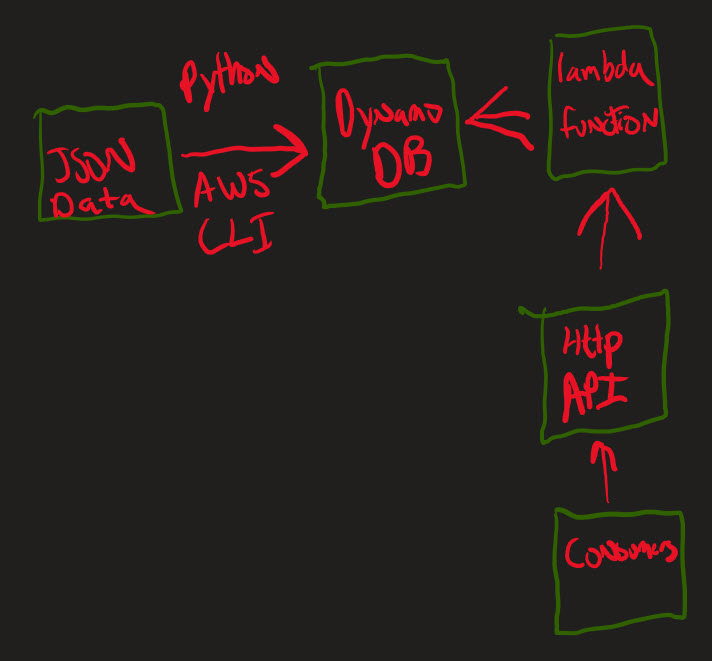 JSON
Data
Python
AWS
CLI
Dynamo
DB
lambda
function
Http
API
Consumers